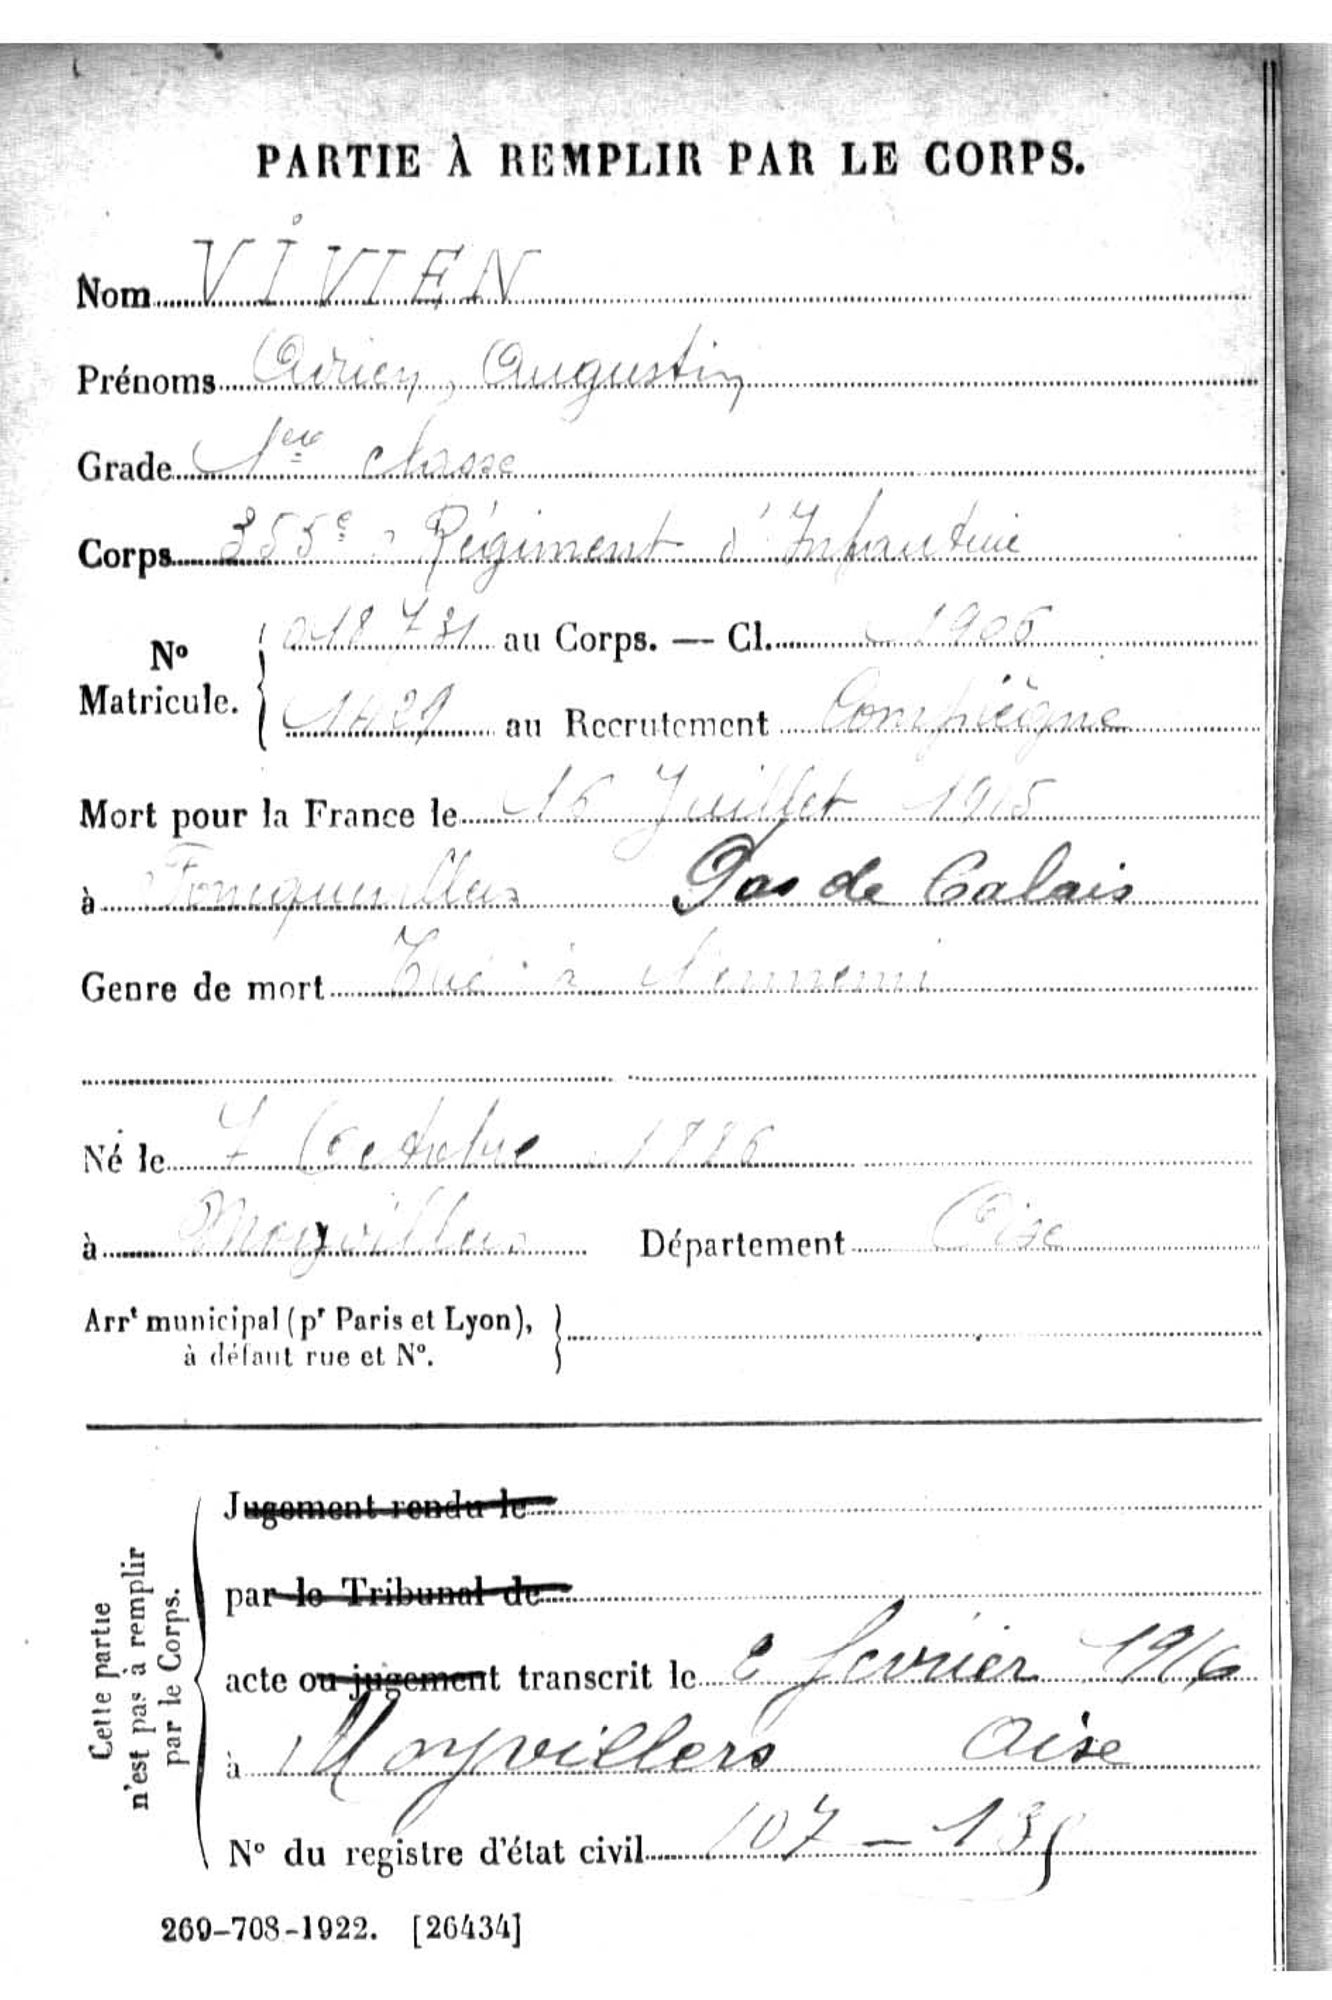 PARTIE À REMPLIR PAR LE CORPS.
Nom VIVIEN
Prénoms Adrien, Augustin
Grade 1re classe
Corps 355e Régiment d'Infanterie
No Matricule. 018731 au Corps. — Cl. 1906
1421 au Recrutement Compiègne
Mort pour la France le 16 Juillet 1915
à Foncquevillers Pas de Calais
Genre de mort Tué à l'ennemi
Né le 7 Octobre 1886
à Moyvillers Département Oise
Arrt municipal (pr Paris et Lyon),
à défaut rue et No.
Cette partie
n'est pas à remplir
par le Corps.
Jugement rendu le
par le Tribunal de
acte ou jugement transcrit le 2 février 1916
à Moyvillers Oise
No du registre d'état civil 107 –
269-708-1922. [26434]